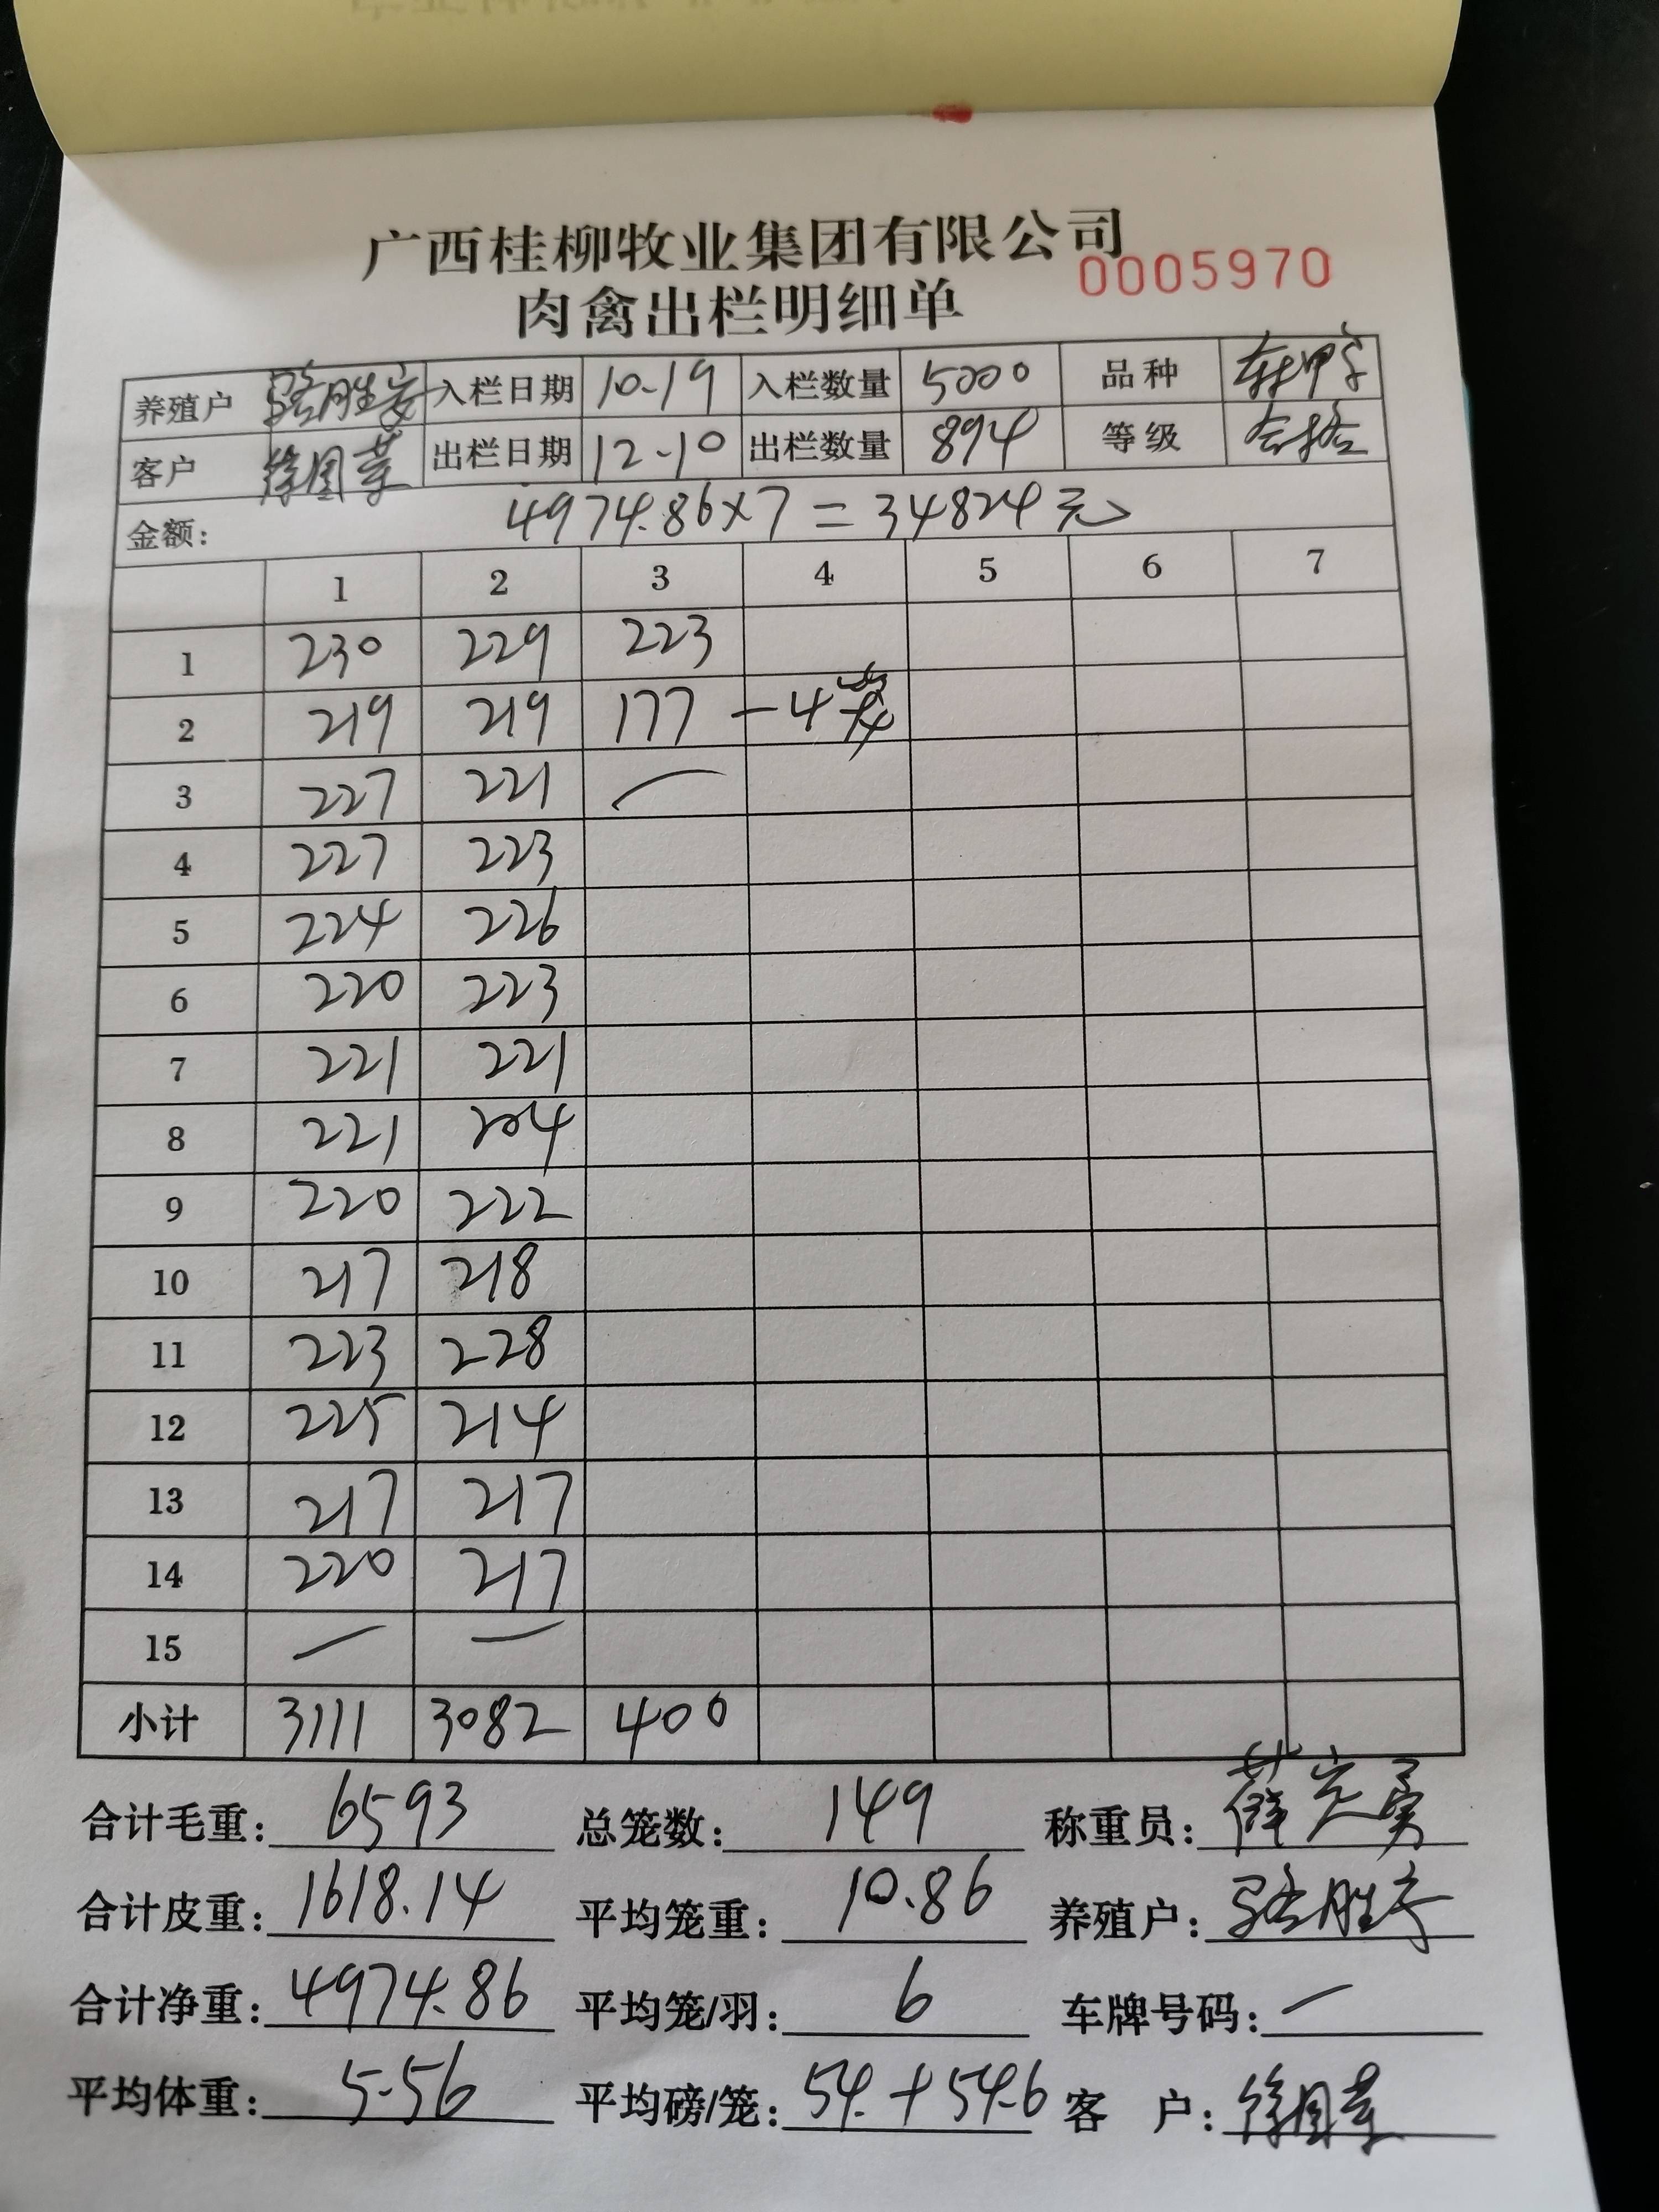 广西桂柳牧业集团有限公司
0005970
肉禽出栏明细单
养殖户 入栏日期 10-19 入栏数量 5000 品种
客户 徐国 出栏日期 12-10 出栏数量 894 等级 合格
金额: 4974.86×7=34824元
1 2 3 4 5 6 7
1 230 229 223
2 219 219 177 -4
3 227 221 —
4 227 223
5 224 226
6 220 223
7 221 221
8 221 204
9 220 222
10 217 218
11 223 228
12 225 214
13 217 217
14 220 217
15 — —
小计 3111 3082 400
合计毛重: 6593 总笼数: 149 称重员: 薛
合计皮重: 1618.14 平均笼重: 10.86 养殖户:
合计净重: 4974.86 平均笼/羽: 6 车牌号码: —
平均体重: 5.56 平均磅/笼: 54.+54.6 客 户: 徐国